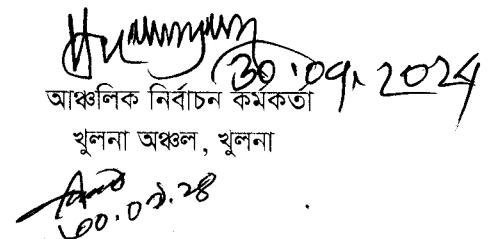 30.09.2024
আঞ্চলিক নির্বাচন কর্মকর্তা
খুলনা অঞ্চল, খুলনা
৩০.০৯.২৪